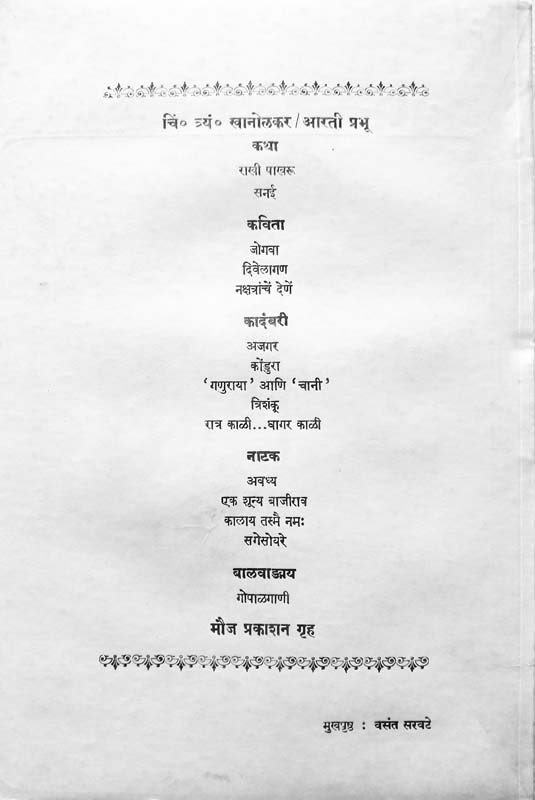 चिं० त्र्यं० खानोलकर / आरती प्रभू
कथा
राखी पाखरू
सनई
कविता
जोगवा
दिवेलागण
नक्षत्रांचें देणें
कादंबरी
अजगर
कोंडुरा
‘गणुराया’ आणि ‘चानी’
त्रिशंकू
रात्र काळी...घागर काळी
नाटक
अवध्य
एक शून्य बाजीराव
कालाय तस्मै नमः
सगेसोयरे
बालवाङ्मय
गोपाळगाणी
मौज प्रकाशन गृह
मुखपृष्ठ : वसंत सरवटे